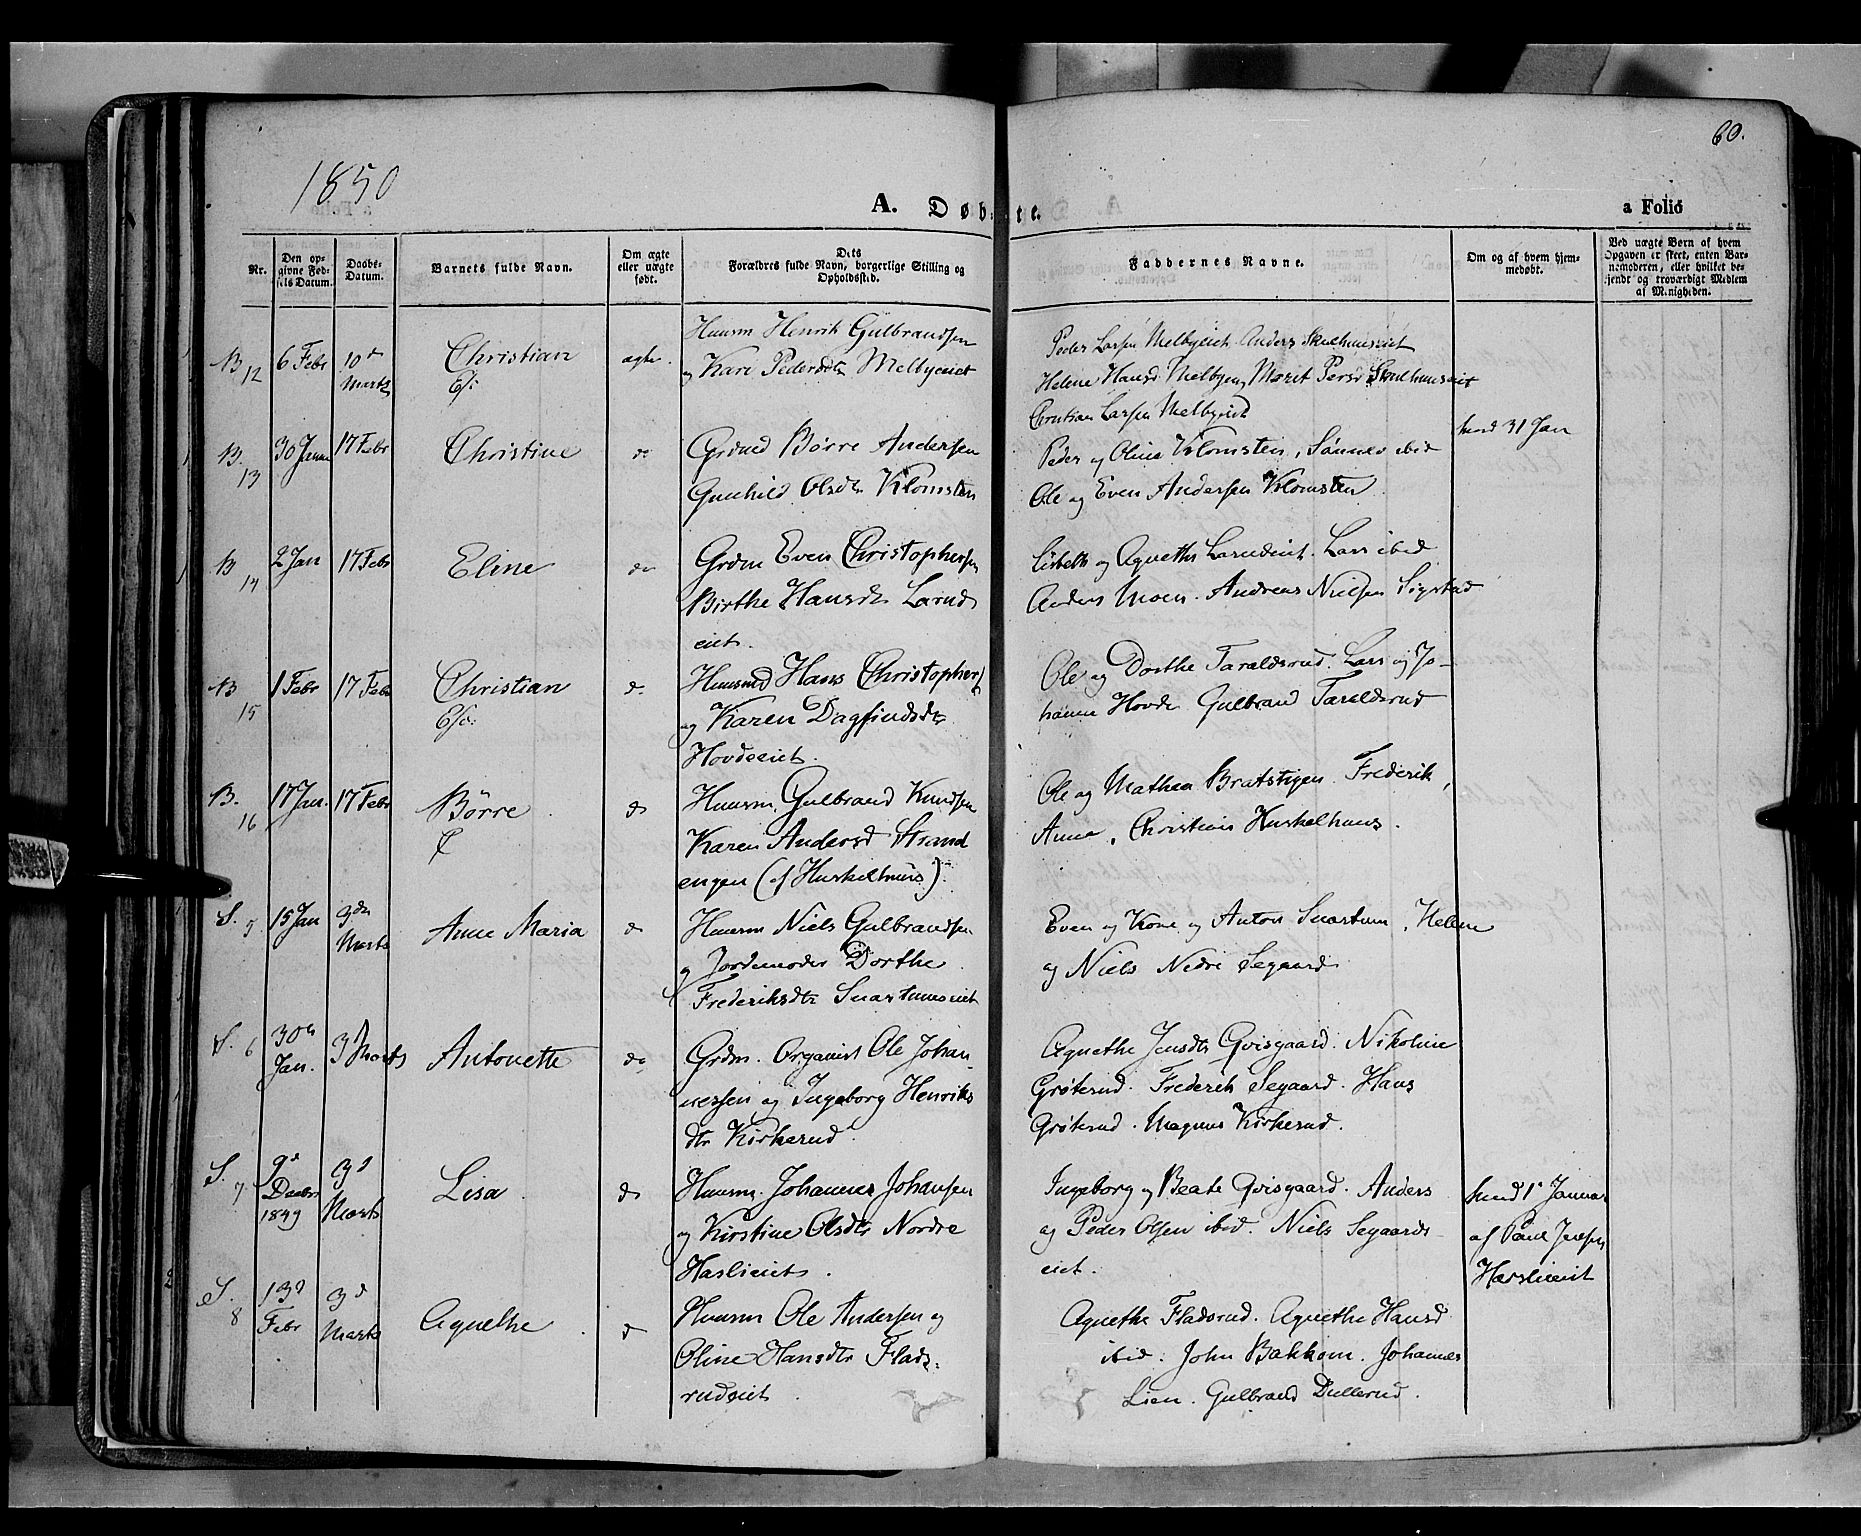 60.
1850
A. Døbte.
a Folio
Nr.
Den opgivne Fødsels Datum.
Daabs-Datum.
Barnets fulde Navn.
Om ægte eller uægte født.
Dets Forældres fulde Navn, borgerlige Stilling og Opholdssted.
Faddernes Navne.
Om og af hvem hjemmedøbt.
Ved uægte Børn af hvem Opgaven er skeet, enten Barnemoderen, eller hvilket bekjendt og troværdigt Medlem af Menigheden.
B 12 6 Febr 10d Marts Christian ægte.
Huusm Henrik Gulbrandsen
og Kari Pedersdtr Melbyeiet
Peder Larsen Melbyeiet. Anders Skulhuuseiet
Helene Hansd Melbyen, Marit Persd Skulhuuseiet
Christian Larsen Melbyeiet
B. 13 30 Janu 17 Febr Christine do
Grdmd Børre Andersen
Gunhild Olsdtr Klomsten
Peder og Oline Klomsten, Sønnev ibid
Ole og Even Andersen Klomsten
hmd 31 Jan
B 14 2 Jan 17 Febr Eline do
Grdm Even Christophersen
Birthe Hansdtr Larud
eiet.
Lisbeth og Agnethe Larudeiet. Lars ibid
Anders Moen. Andreas Nielsen Sigstad
B 15 1 Febr 17 Febr Christian do
Huusmd Hans Christophers
og Karen Dagfindsdtr
Hovdeeiet.
Ole og Dorthe Taraldsrud. Lars og Jo-
hanne Hovde Gulbrand Taraldsrud
B. 16 17 Jan. 17 Febr Børre do
Huusm. Gulbrand Knudsen
Karen Andersd Strand
engen (af Huskelhuus).
Ole og Mathea Bratstigen. Frederik,
Anne, Christian Huskelhuus.
S. 5 15 Jan 3die Marts Anne Maria do
Huusm Niels Gulbrandsen
og Jordemoder Dorthe
Frederiksdtr Snartumseiet
Even og Kone og Anton Snartum, Helene
og Niels Nedre Segaard
S. 6 30te Jan. 3d Marts Antonette do
Grdm. Organist Ole Johan-
nessen og Ingeborg Henriks
dtr Kirkerud.
Agnethe Jensdtr Qvisgaard. Nikoline
Grøterud. Frederik Segaard. Hans
Grøterud. Magnus Kirkerud.
S. 7 9d Decbr 1849 3d Marts Lisa do
Huusm. Johannes Johansen
og Kirstine Olsdtr Nordre
Haslieiet.
Ingeborg og Beate Qvisgaard. Anders
og Peder Olsen ibid. Niels Segaards-
eiet.
hmd 1d Januar
af Paul Jensen
Haslieiet
S. 8 13d Febr 3d Marts Agnethe d
Huusm Ole Andersen og
Oline Hansdtr Flads-
rudeiet.
Agnethe Fladsrud. Agnethe Hansd
ibid. John Bakkom. Johannes
Lien. Gulbrand Dullerud.